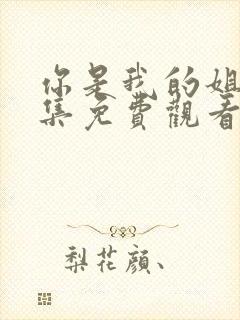 你是我的姐
集免費觀看
梨花顔、